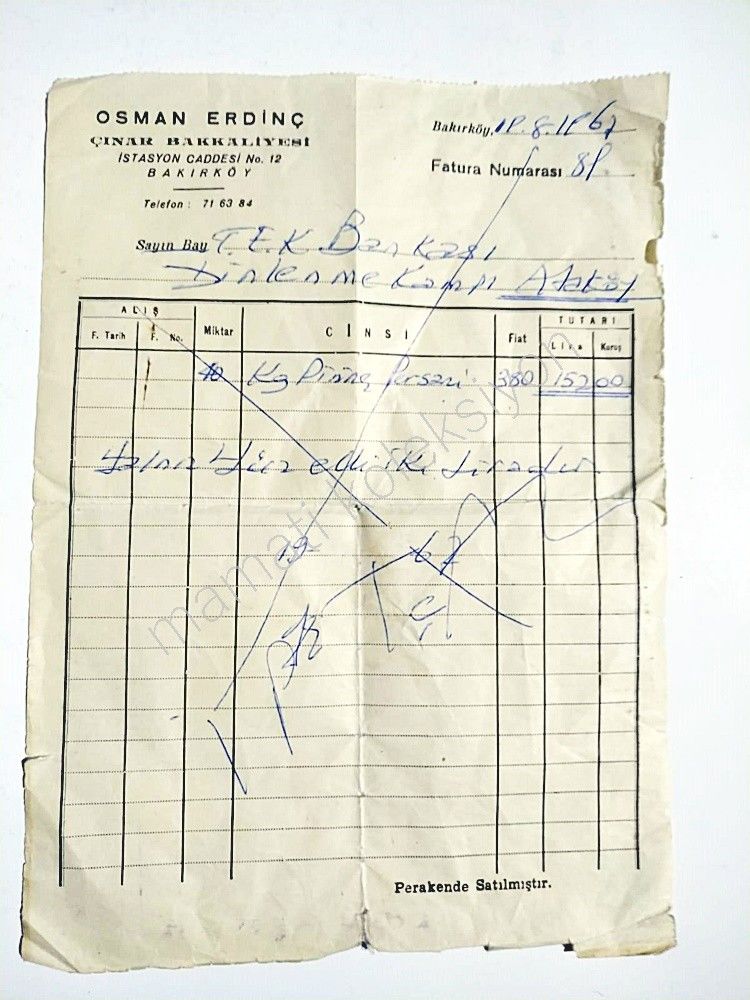 OSMAN ERDİNÇ
ÇINAR BAKKALİYESİ
İSTASYON CADDESİ No. 12
BAKIRKÖY
Telefon : 71 63 84
Bakırköy, 19.8.1967
Fatura Numarası 89
Sayın Bay T.E.K. Bankası
Dinlenme Kampı Ataköy
ALIŞ
F. Tarih F. No. Miktar CİNSİ Fiat
TUTARI
Lira Kuruş
40 Kg Pirinç 380 152 00
Yalnız Yüz elli iki liradır
19 67
Perakende Satılmıştır.
mamati koleksiyon